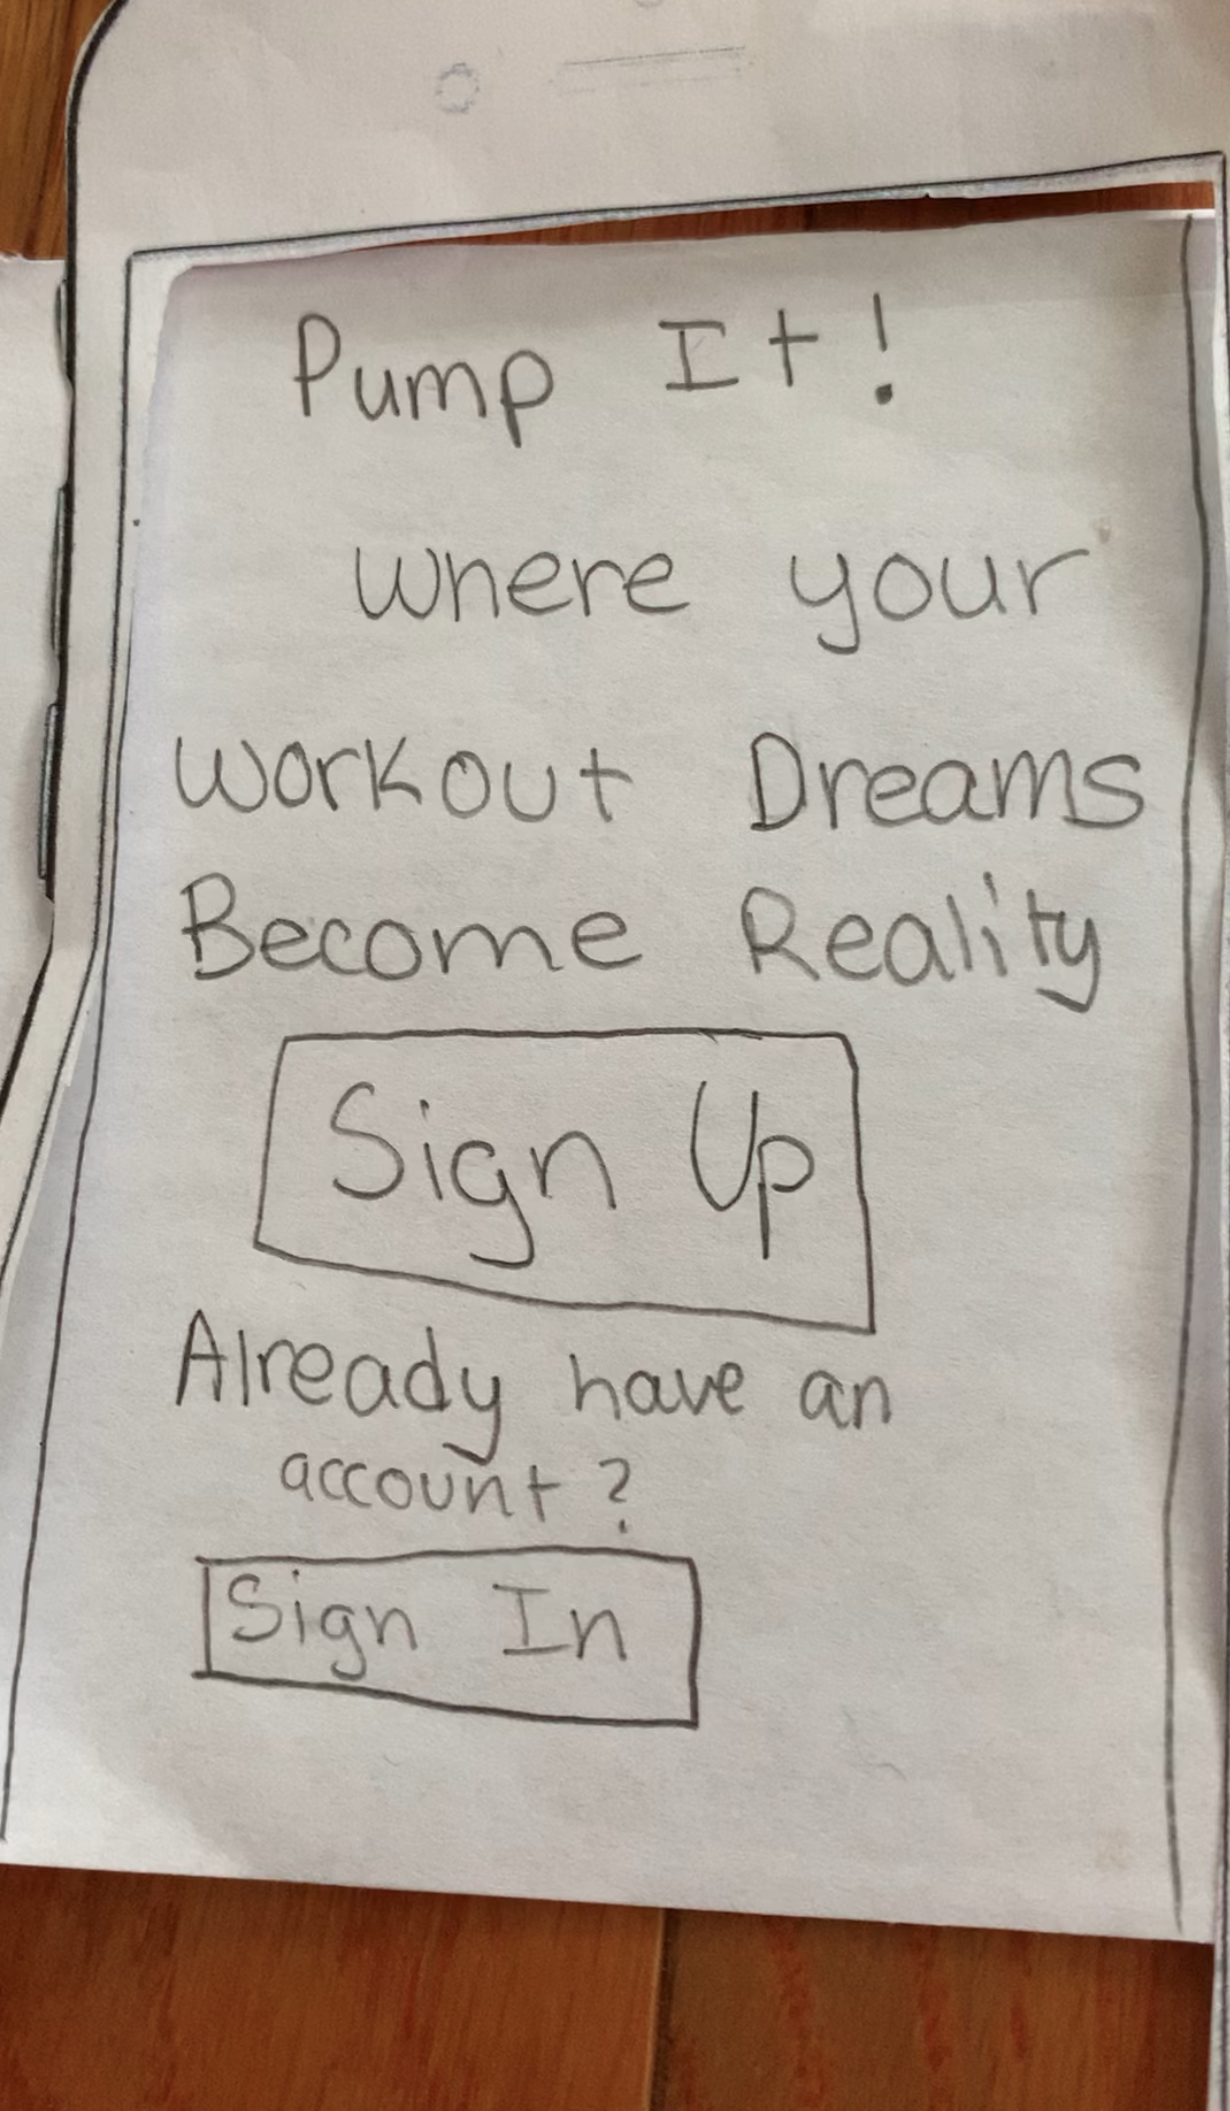 Pump It!
where your
Workout Dreams
Become Reality
Sign Up
Already have an
account?
Sign In